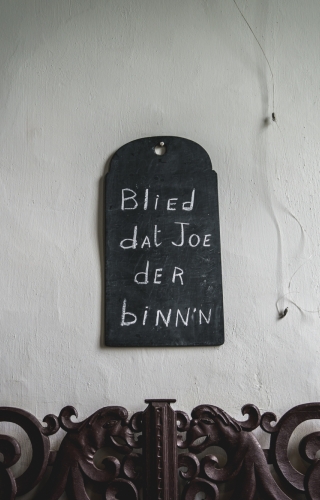 Blied
dat Joe
der
binn'n